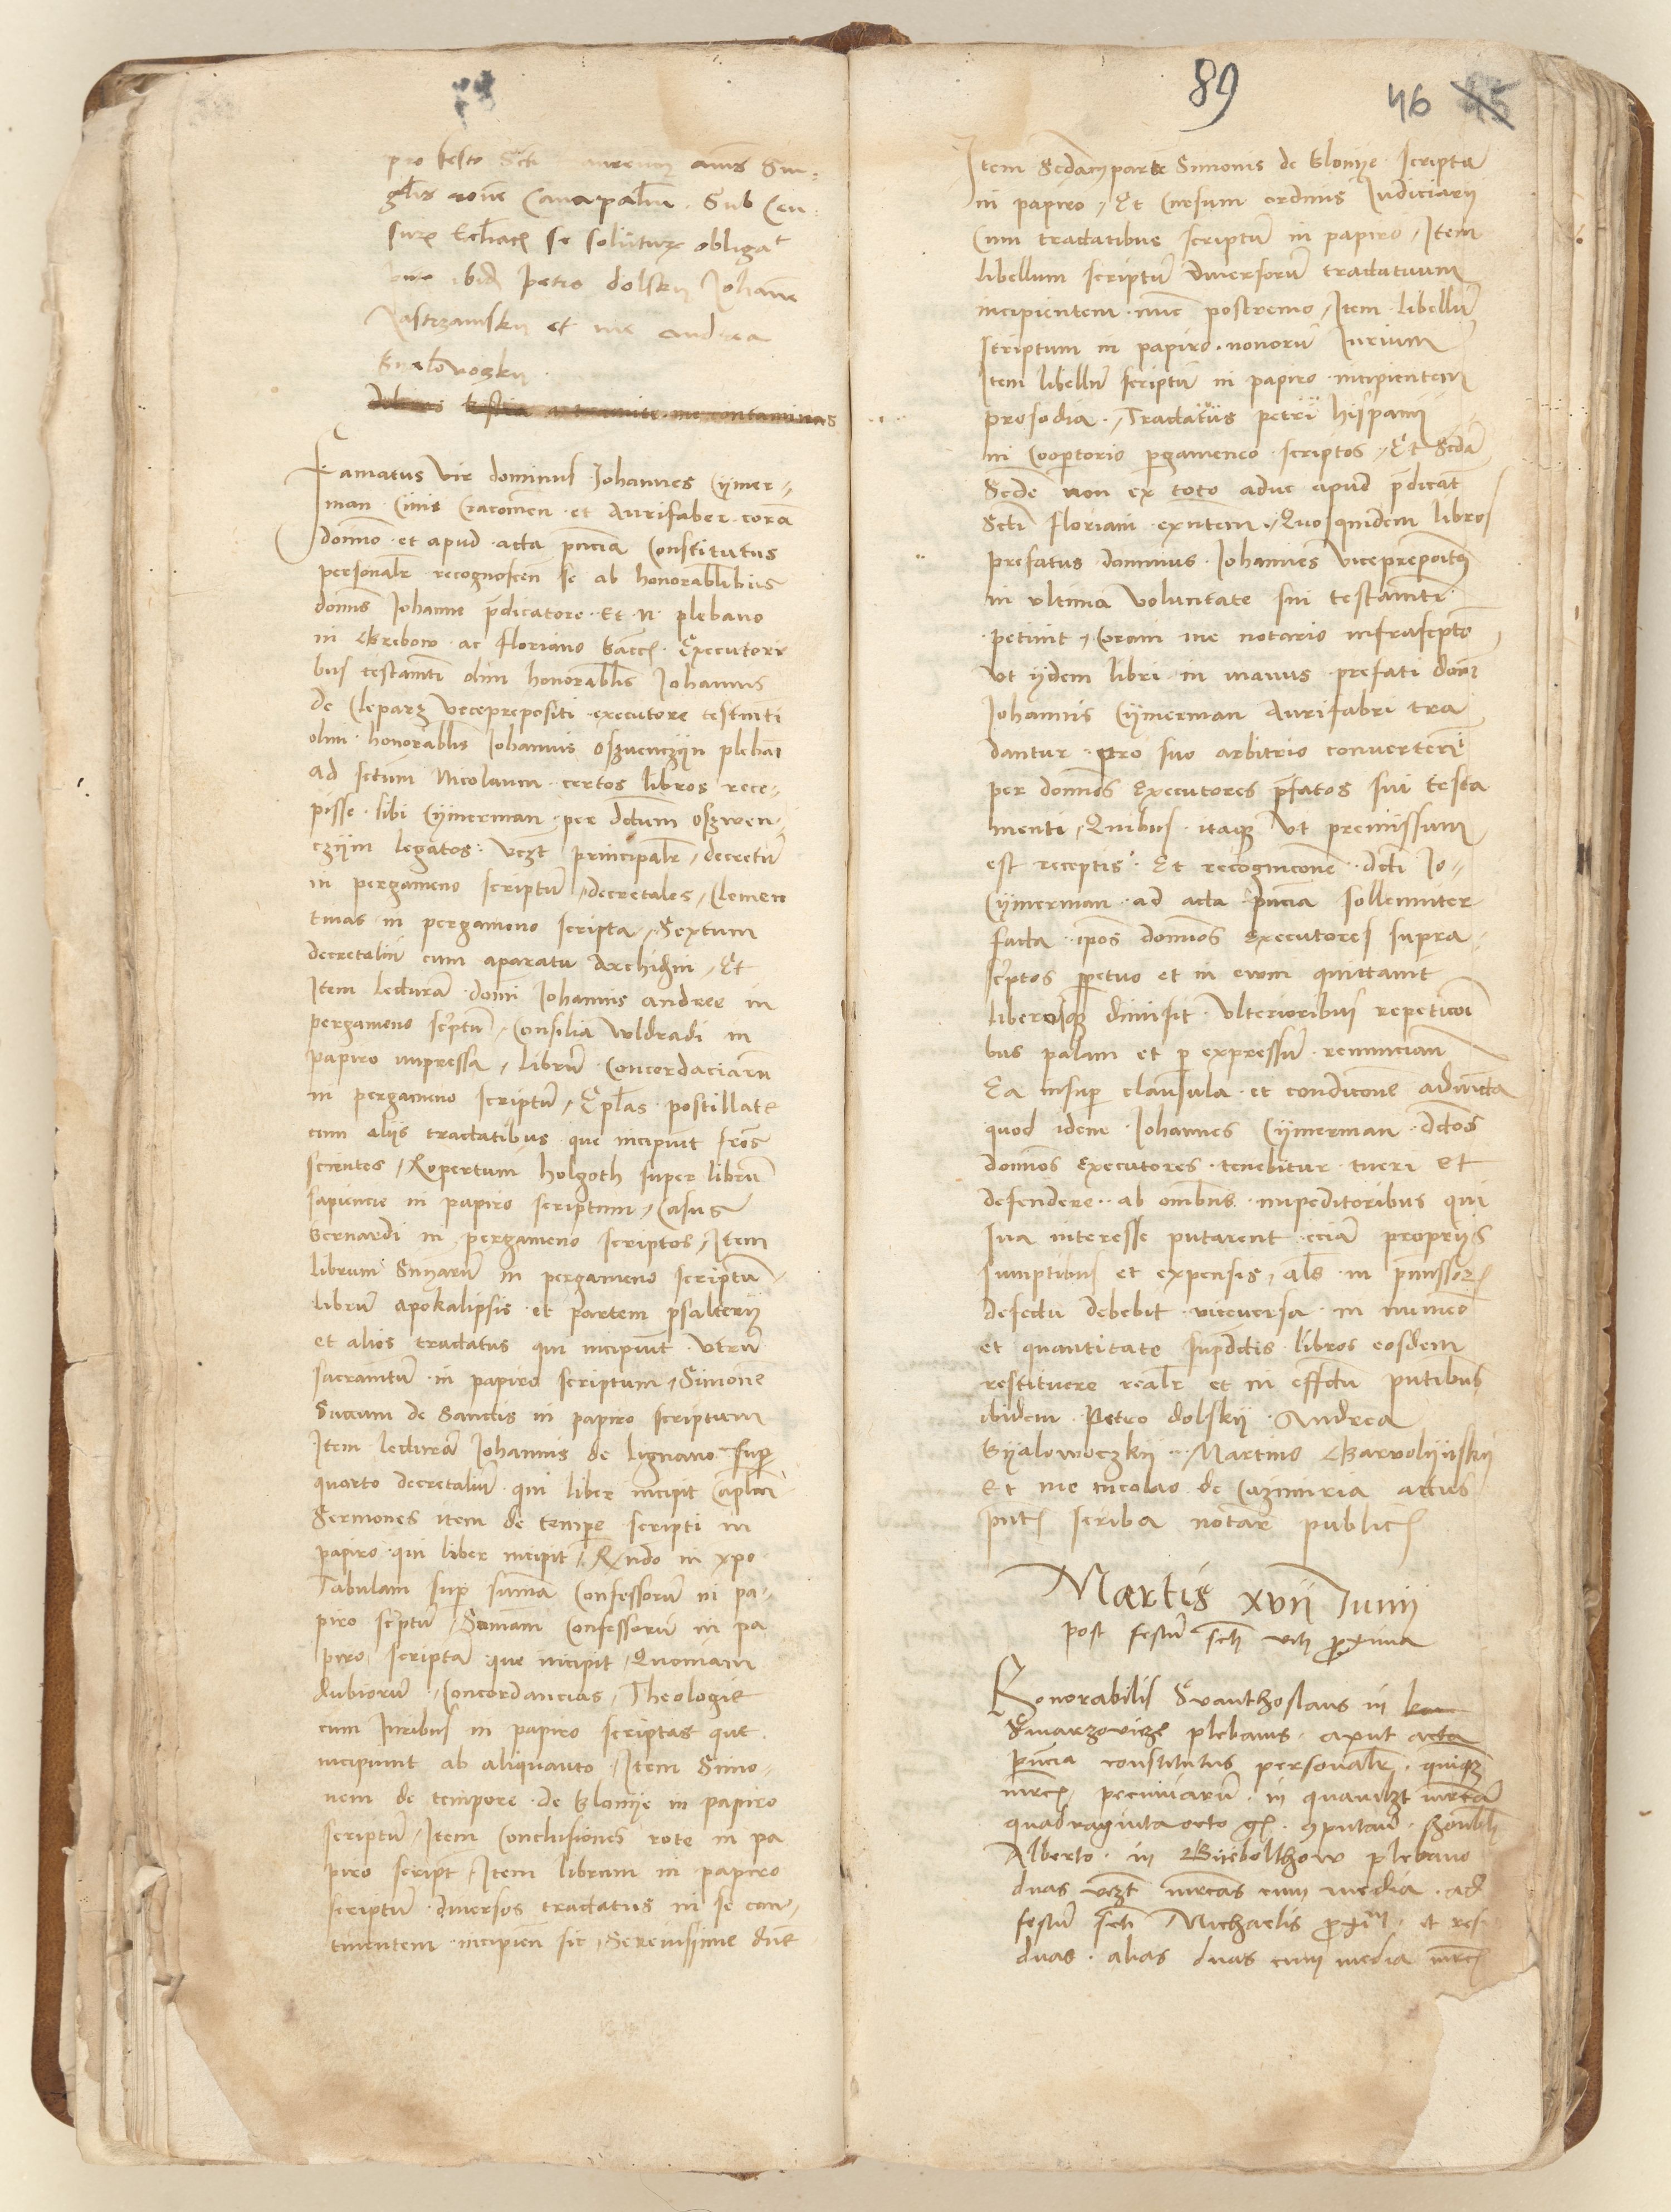 pro festo Scti annis Sin-
glis none Canapaliu. Sub Cen
suris Ecliacis se soliturus obligat
ibid Petro dolsky Johanne
Jastrzamsky et me andrea
Byalowozky
Famatus vir dominus Johannes Cymer-
man Civis Cracovien et Aurifaber cora
domino et apud acta pncia Constitutus
personalr recognoscen se ab honorablibus
domis Johanne pdicatore Et N plebano
in Grebow ac floriano Executori
bus testamti olim honorablis Johannis
de Cleparz viceprepositi executore testmti
olim honorablis Johannis oszwenczyn plebai
ad sctum Nicolaum certos libros rece-
pisse sibi Cymerman per dctum oszwen-
czym legatos vczt principalr decretu
in pergameno scriptu decretales Clemen
tinas in pergameno scripta Sextum
decretaliu cum aparatu Archidni Et
Item lectura domi Johannis andree in
pergameno scriptu Consilia vldradi in
papiro impressa libru Concordaciaru
in pergameno scriptu Eplas postillate
cum aliis tractatibus que incipiut fres
scientes Ropertum holgoth super libru
sapiencie in papiro scriptum Casus
bernardi in pergameno scriptos Item
librum Sumaru in pergameno scriptu
libru apokalipsis et partem psalterij
et alios tractatus qui incipiut vtru
sacramtu in papiro scriptum Simone
Succum de Sanctis in papiro scriptum
Item lectura Johannis de lignano sup
quarto decretaliu qui liber incipit Caplm
Sermones item de tempe scripti in
papiro qui liber incipit Rndo in xpo
Tabulam sup summa Confessoru in pa-
piro scriptu Somam Confessoru in pa
piro scripta que incipit Quoniam
dubioru Concordancias Theologie
cum Iuribus in papiro scriptas que
incipiunt ab aliquanto Item Simo-
nem de tempore de Glomye in papiro
scriptu Item Conclusiones rote in pa
piro script Item librum in papiro
scriptu diversos tractatus in se con-
tinentem incipien sic Serenissime dne
89
46 45
Item Scdam parte Simonis de Glomye scripta
in papiro Et Cursum ordinis Iudiciarij
Cum tractatibus scriptu in papiro Item
libellum scriptu diversoru tractatuum
incipientem nuc postremo Item libellu
scriptum in papiro nonoru Iurium
Item libellu scriptu in papiro incipientem
prosodia Tractatus petri hispani
in Coopertorio pgameneo scriptos Et Scda
Scde non ex toto aduc apud pdicat
Scti floriani exntem Quosquidem libros
prefatus dominus Johannes viceprepoitus
in vltima voluntate sui testamti
petiuit Coram me notario infrascpto
vt ijdem libri in manus prefati domi
Johannis Cymerman Aurifabri tra
dantur pro suo arbitrio converteri
per domos Executores pfatos sui testa
menti Quibus itaque vt premissum
est receptis Et recognicone dcti Jo-
Cymerman ad acta pncia sollenniter
facta ipos domos Executores supra
scriptos ppetuo et in evom quittauit
liberosque dimisit vlterioribus repeticoi
bus palam et p expressu renuncian
Ea insup clausula et condicone adiucta
quod idem Johannes Cymerman dctos
domos Executores tenebitur tueri et
defendere ab omibus impeditoribus qui
sua interesse putarent ecia proprijs
sumptibus et expensis als in pmissor
defectu debebit viceversa in numeo
et quantitate supdctis libros eosdem
restituere realr et in effctu pntibus
ibidem Petro dolskij Andrea
Byalowoczkij Martino Garvolijnskij
Et me nicolao de Cazimiria actus
pntis scriba notar publics
Martis xvij Iunij
post festu scti viti proxima
Honorabilis Svanthoslaus in
Swarzovicze plebanus aput acta
pncia constitutus personalr quinque
mrcs pecuniaru in quamlzt mrca
quadraginta octo gs computan honrbli
Alberto in Biebolthow plebano
duas vczt mrcas cum media ad
festu scti Michaelis proxim et resi
duas alias duas cum media mrcs